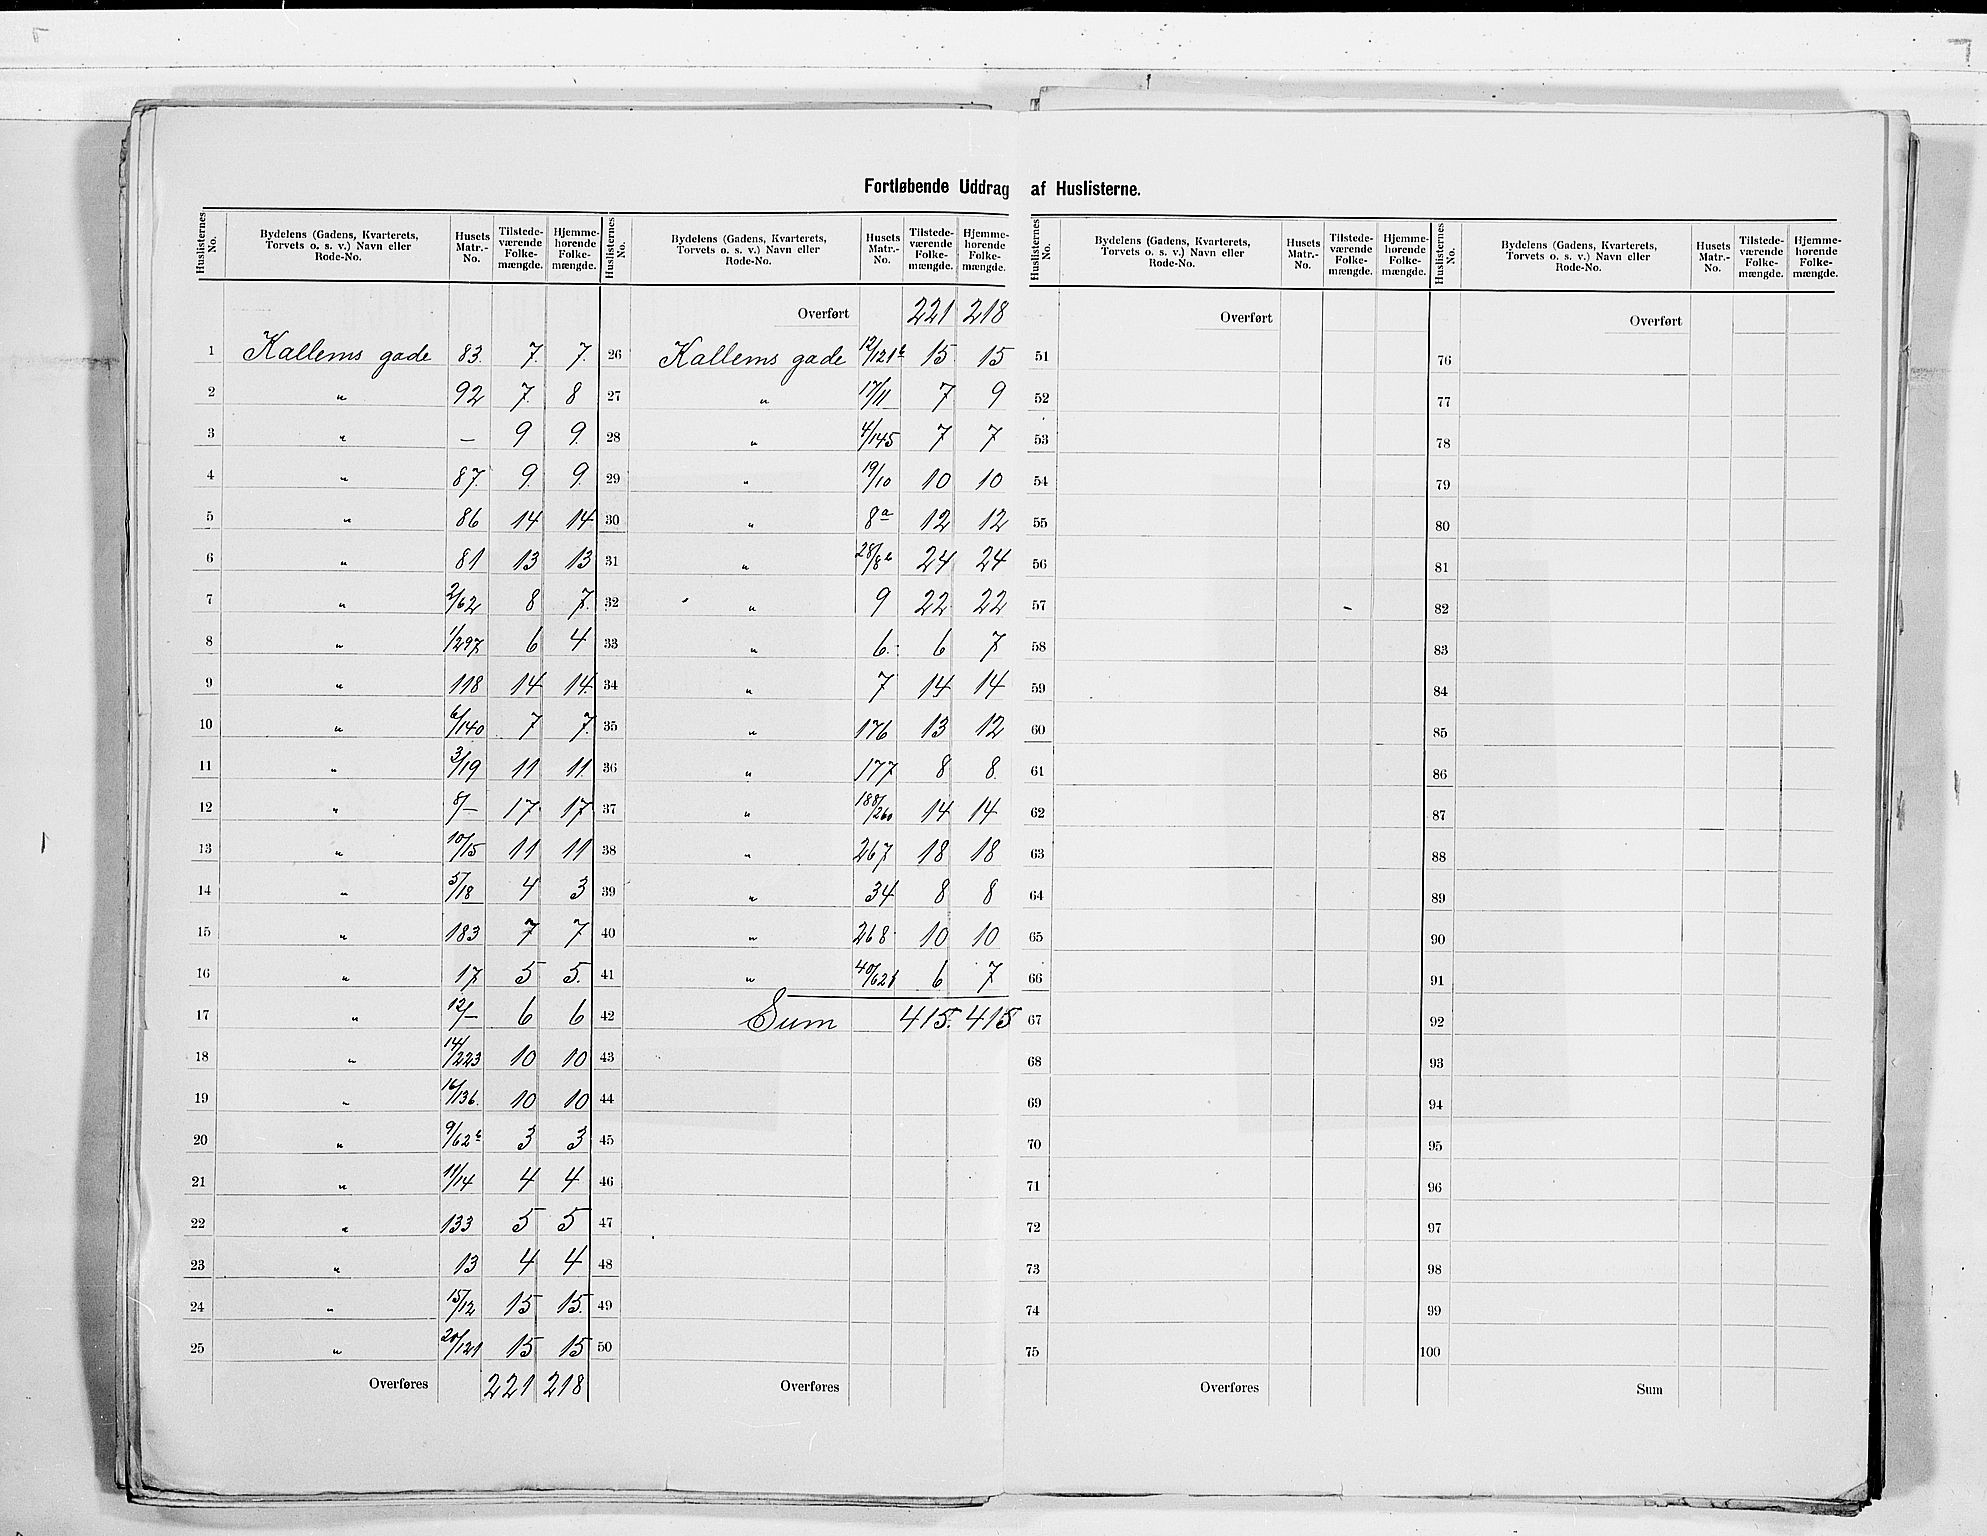 Fortløbende Uddrag af Huslisterne.
Huslisternes No. | Bydelens (Gadens, Kvarterets, Torvets o. s. v.) Navn eller Rode-No. | Husets Matr.-No. | Tilstedeværende Folkemængde. | Hjemmehørende Folkemængde.
1 Kallems gade 83. 7. 7.
2 " 92 7. 8
3 " — 9 9.
4 " 87. 9. 9.
5 " 86 14 14
6 " 81 13 13
7 " 2/62 8 7.
8 " 1/297 6 4
9 " 118 14 14.
10 " 6/140 7 7.
11 " 3/19 11 11.
12 " 8/— 17. 17.
13 " 10/15 11 11
14 " 5/18 4 3
15 " 183 7 7
16 " 17. 5 5.
17 " 12/— 6 6
18 " 14/223 10 10
19 " 16/136. 10 10
20 " 9/62b 3 3
21 " 11/14 4 4
22 " 133 5 5
23 " 13 4 4
24 " 15/12 15 15.
25 " 20/121 15 15
Overføres 221 218
Huslisternes No. | Bydelens (Gadens, Kvarterets, Torvets o. s. v.) Navn eller Rode-No. | Husets Matr.-No. | Tilstedeværende Folkemængde. | Hjemmehørende Folkemængde.
Overført 221 218
26 Kallems gade 12/121b 15 15
27 " 17/11 7 9
28 " 4/145 7 7
29 " 19/10 10 10
30 " 8a 12 12
31 " 28/8b 24 24
32 " 9 22 22
33 " 6. 6 7
34 " 7 14 14
35 " 176 13 12
36 " 177 8 8.
37 " 188/260 14 14
38 " 267 18 18
39 " 34 8 8
40 " 268 10 10
41 " 40/621 6 7
42 Sum 415. 415
43
44
45
46
47
48
49
50
Overføres
Huslisternes No. | Bydelens (Gadens, Kvarterets, Torvets o. s. v.) Navn eller Rode-No. | Husets Matr.-No. | Tilstedeværende Folkemængde. | Hjemmehørende Folkemængde.
Overført
51
52
53
54
55
56
57
58
59
60
61
62
63
64
65
66
67
68
69
70
71
72
73
74
75
Overføres
Huslisternes No. | Bydelens (Gadens, Kvarterets, Torvets o. s. v.) Navn eller Rode-No. | Husets Matr.-No. | Tilstedeværende Folkemængde. | Hjemmehørende Folkemængde.
Overført
76
77
78
79
80
81
82
83
84
85
86
87
88
89
90
91
92
93
94
95
96
97
98
99
100
Sum